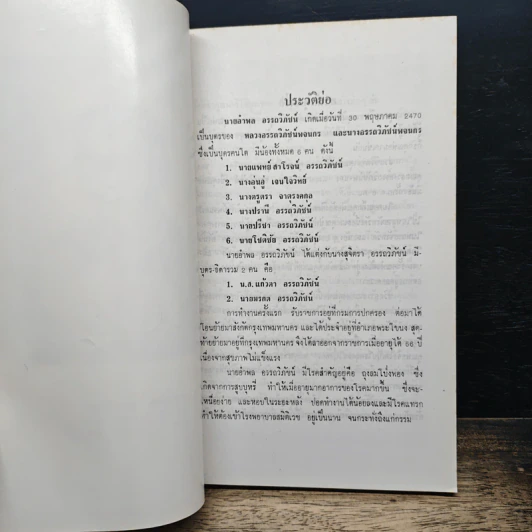 ประวัติย่อ
นายอำพล อรรถวิภัชน์ เกิดเมื่อวันที่ 30 พฤษภาคม 2470
เป็นบุตรของ หลวงอรรถวิภัชน์พจนกร และนางอรรถวิภัชน์พจนกร
ซึ่งเป็นบุตรคนโต มีน้องทั้งหมด 6 คน ดังนี้
1. นายแพทย์ สาโรจน์ อรรถวิภัชน์
2. นางอุ่นอู่ เจนใจวิทย์
3. นางดรุตรา จาตุรงคกุล
4. นางปรานี อรรถวิภัชน์
5. นายปรีชา อรรถวิภัชน์
6. นายโชติชัย อรรถวิภัชน์
นายอำพล อรรถวิภัชน์ ได้แต่งกับนางสุจิตรา อรรถวิภัชน์ มี-
บุตร-ธิดารวม 2 คน คือ
1. น.ส. แก้วตา อรรถวิภัชน์
2. นายมรกต อรรถวิภัชน์
การทำงานครั้งแรก รับราชการอยู่ที่กรมการปกครอง ต่อมาได้
โอนย้ายมาสังกัดกรุงเทพมหานคร และได้ประจำอยู่ที่อำเภอพระโขนง สุด-
ท้ายย้ายมาอยู่ที่กรุงเทพมหานคร จึงได้ลาออกจากราชการเมื่ออายุได้ 55 ปี
เนื่องจากสุขภาพไม่แข็งแรง
นายอำพล อรรถวิภัชน์ มีโรคสำคัญอยู่คือ ถุงลมโป่งพอง ซึ่ง
เกิดจากการสูบบุหรี่ ทำให้เมื่ออายุมากอาการของโรคมากขึ้น ซึ่งจะ-
เหนื่อยง่าย และหอบในระยะหลัง ปอดทำงานได้น้อยลงและมีโรคแทรก
ทำให้ต้องเข้าโรงพยาบาลสมิติเวช อยู่เป็นนาน จนกระทั่งถึงแก่กรรม